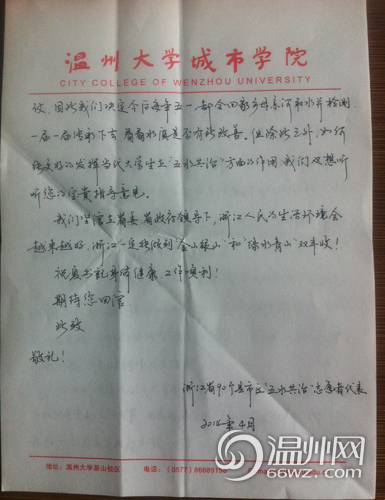 温州大学城市学院
CITY COLLEGE OF WENZHOU UNIVERSITY
仗，因此我们决定今后每年五一都会回家乡母亲河取水并检测，
一届一届传承下去，看看水质是否有所改善。但除此之外，如何
能更好的发挥当代大学生在“五水共治”方面的作用，我们也想听
听您的宝贵指导意见。
我们坚信在省委省政府领导下，浙江人民的生活环境会
越来越好，浙江一定能做到“金山银山”和“绿水青山”双丰收！
祝夏书记身体健康，工作顺利！
期待您回信
此致
敬礼！
浙江省90个县市区“五水共治”志愿者代表
2014年4月
地址：温州大学茶山校区
电话：(0577) 86689
温州网
66WZ.com